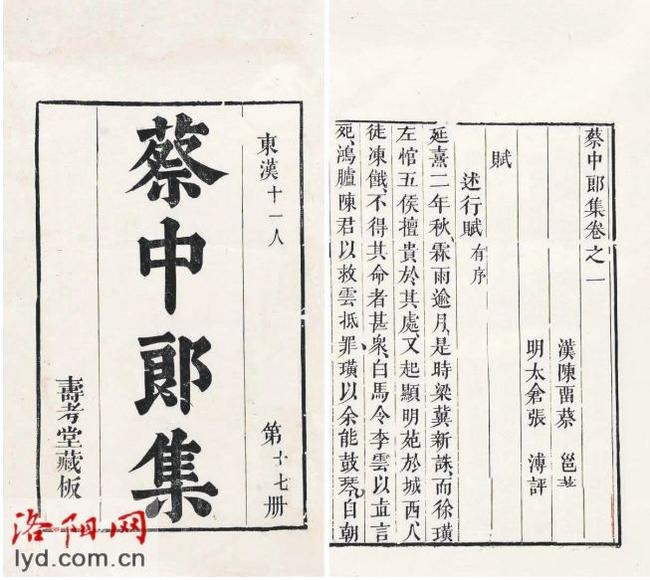 東漢十一人 第十七册
蔡中郎集
壽考堂藏板
洛阳网
lyd.com.cn
蔡中郎集卷之一
漢陳畱蔡 邕著
明太倉張 溥評
賦
述行賦有序
延熹二年秋、霖雨逾月、是時梁冀新誅、而徐璜
左悺五侯擅貴於其處、又起顯明苑於城西、人
徒凍餓、不得其命者甚衆、白馬令李雲以直言
死、鴻臚陳君以救雲抵罪、璜以余能鼓琴、自朝